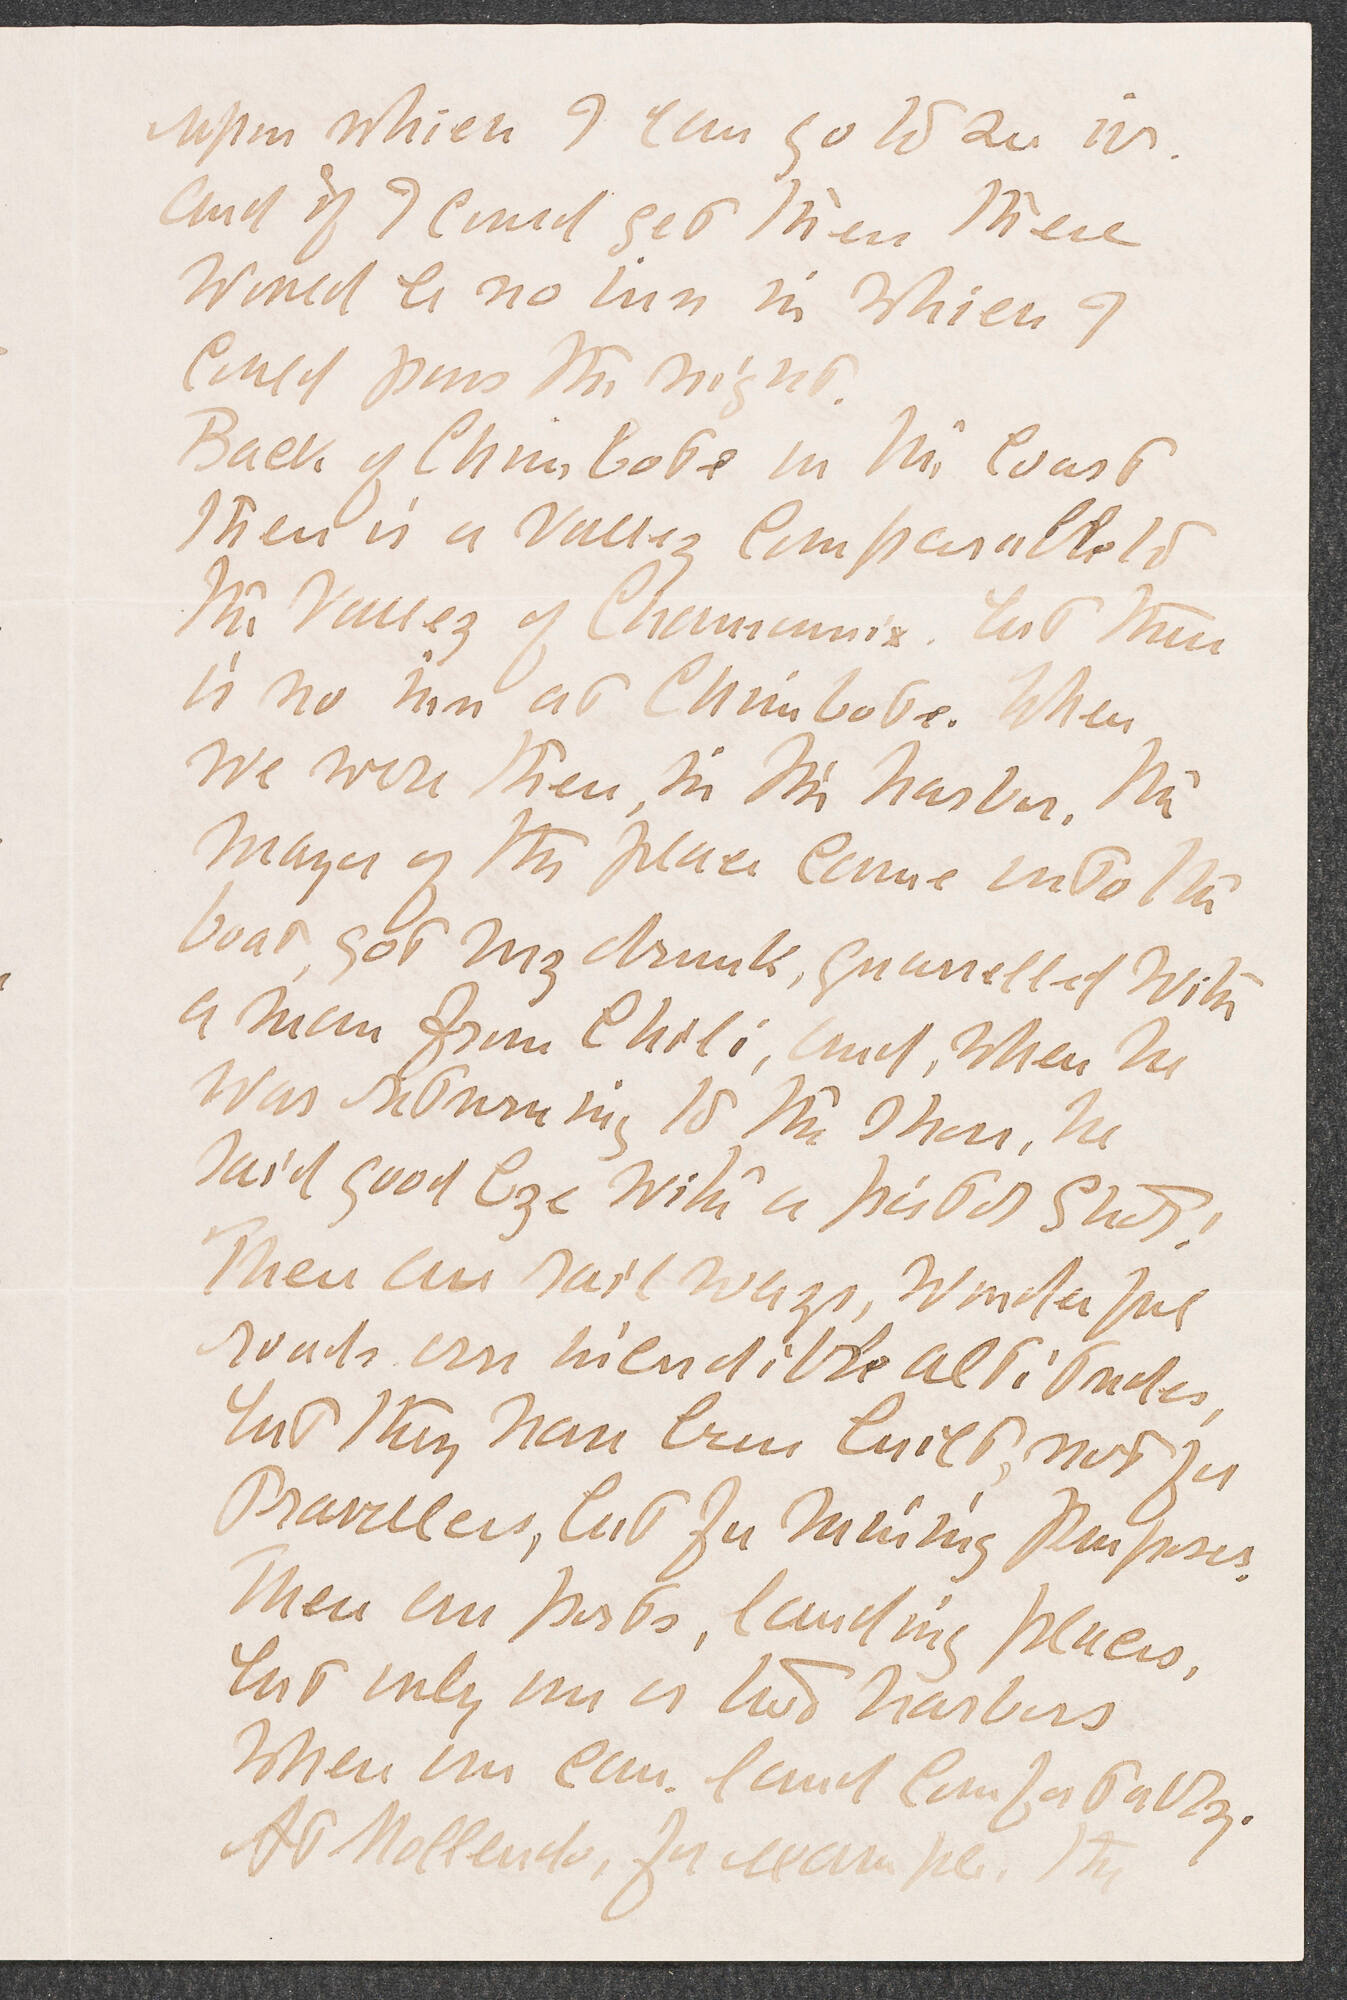 upon which I can go to see it.
And if I could get there there
would be no inn in which I
could pass the night.
Back of Chimbote on the coast
there is a valley comparable to
the valley of Chamounix. but there
is no inn at Chimbote. When
we were there, in the harbor, the
mayor of the place came onto the
boat, got very drunk, quarrelled with
a man from Chili, and, when he
was returning to the shore, he
said good bye with a pistol shot!
There are rail ways, wonderful
roads and incredible altitudes,
but they have been built, not for
travellers, but for mining purposes.
There are ports, landing places,
but only one or two harbors
where one can land comfortably.
At Mollendo, for example, the